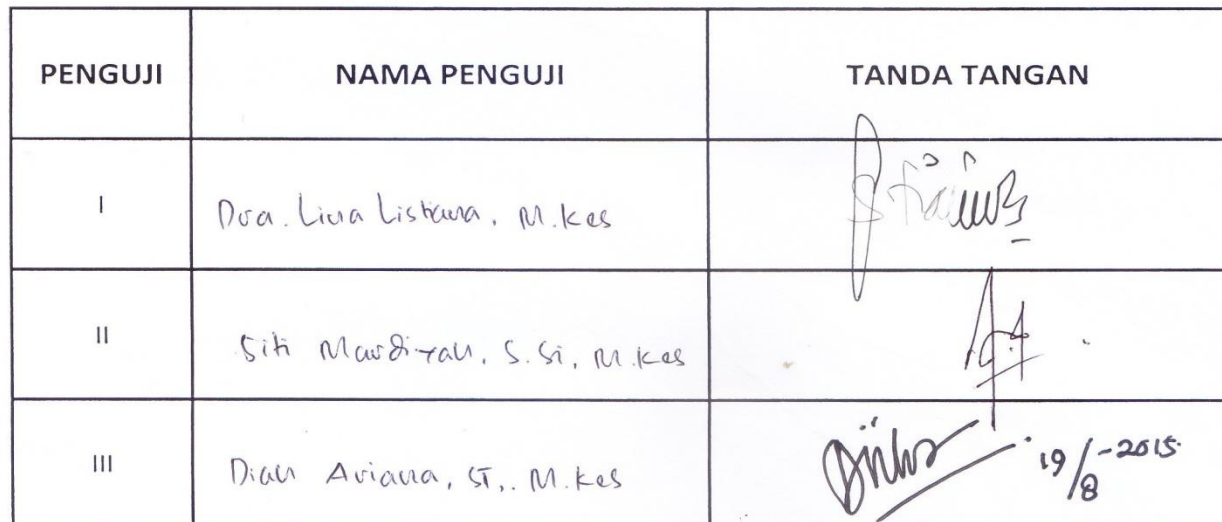 PENGUJI NAMA PENGUJI TANDA TANGAN
I Dra. Lina Listiana, M.Kes
II Siti Mardiyah, S.Si, M.Kes
III Dian Aviana, ST,. M.Kes 19/8-2015